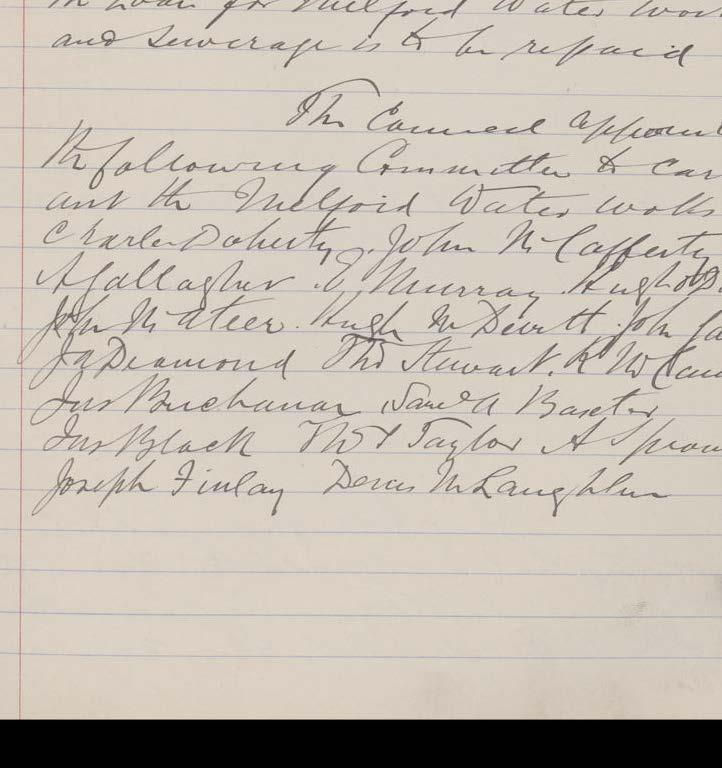 Loan for Milford Water Wor
and Sewerage is to be repaid
The Council appoint
the following Committee to car
out the Milford Water Works
Charles Doherty. John McCafferty
A Gallagher. E Murray. Hugh
John McAteer. Hugh McDevitt. John Ga
Js Diamond Thos Stewart. R McCau
Jas Buchanan Saml A Baxter
Jas Black Thos Taylor A Sprou
Joseph Finlay Denis McLaughlin